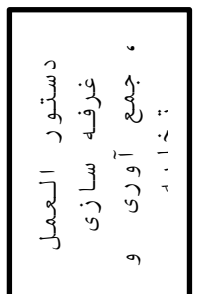 دستور العمل
غرفه سازی
، جمع آوری و